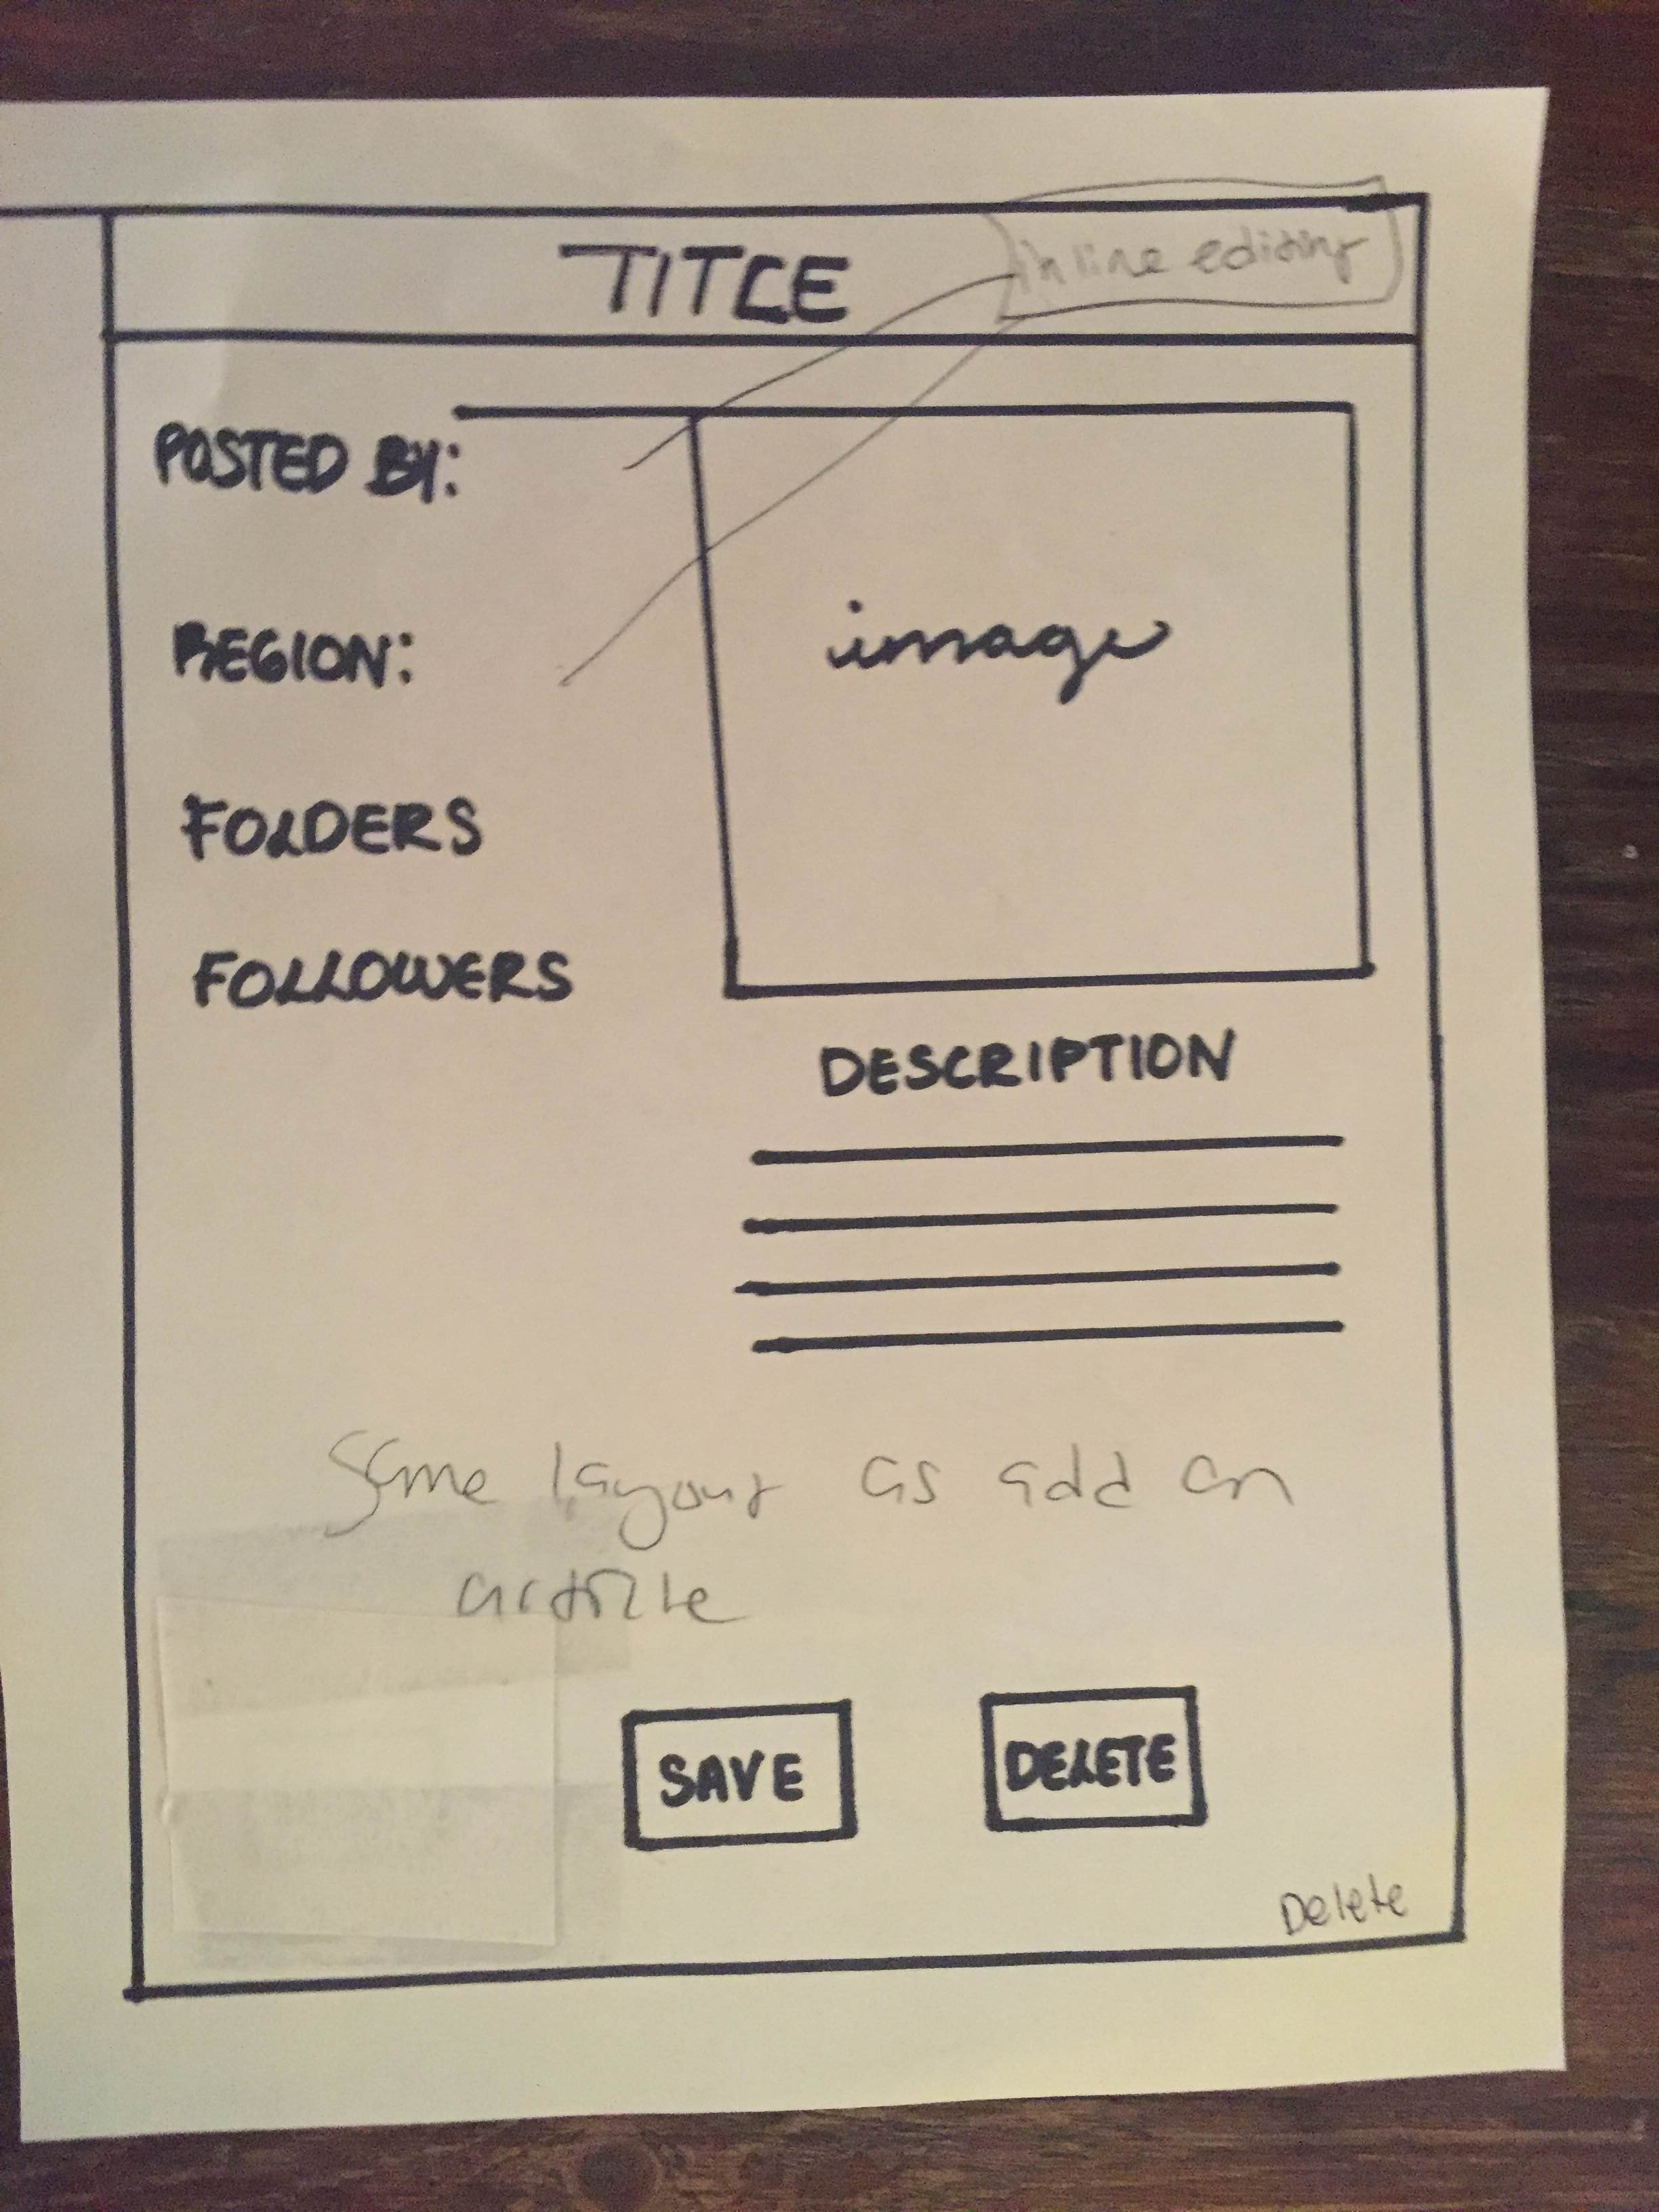 TITLE
inline editing
POSTED BY:
REGION:
image
FOLDERS
FOLLOWERS
DESCRIPTION
Same layout as add an
article
SAVE
DELETE
Delete